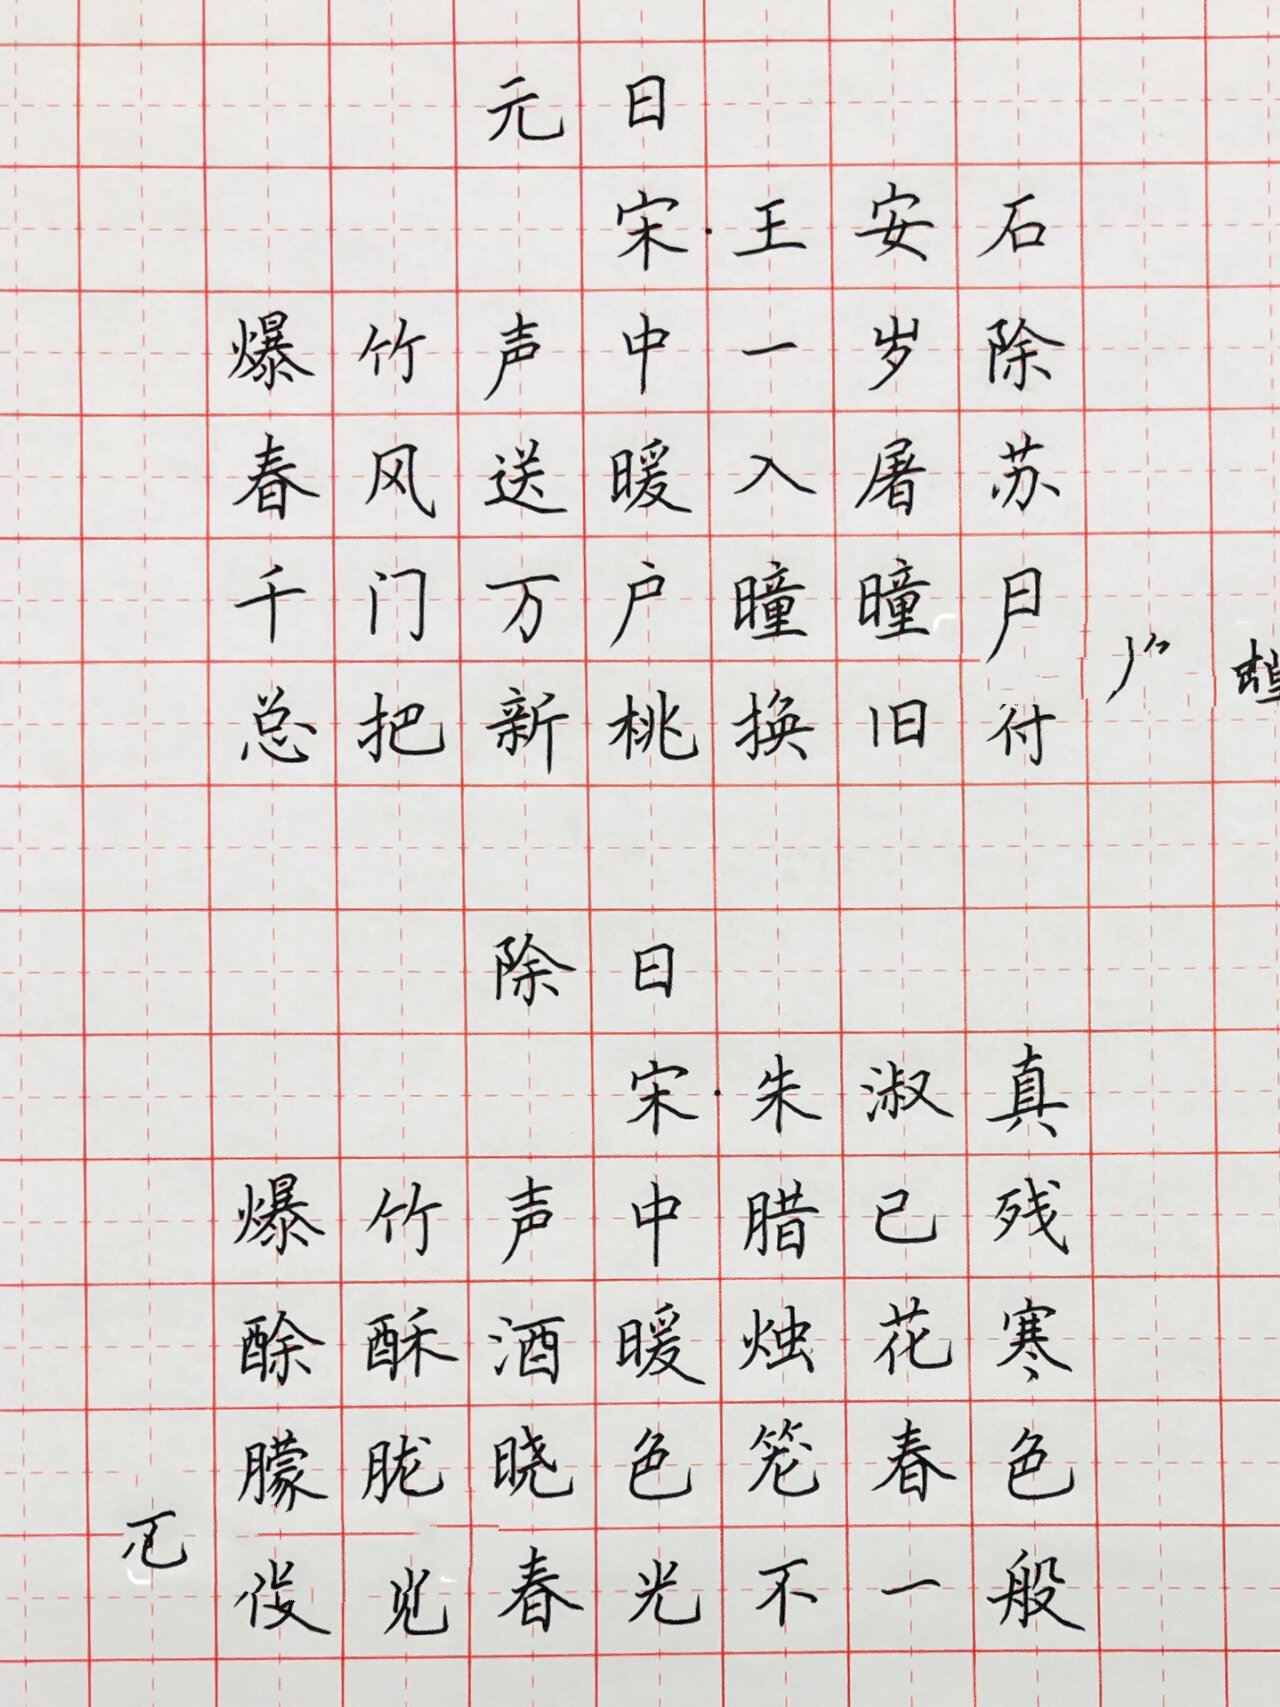 元日
宋·王安石
爆竹声中一岁除
春风送暖入屠苏
千门万户曈曈
总把新桃换旧付
除日
宋·朱淑真
爆竹声中腊已残
酴酥酒暖烛花寒
朦胧晓色笼春色
春光不一般